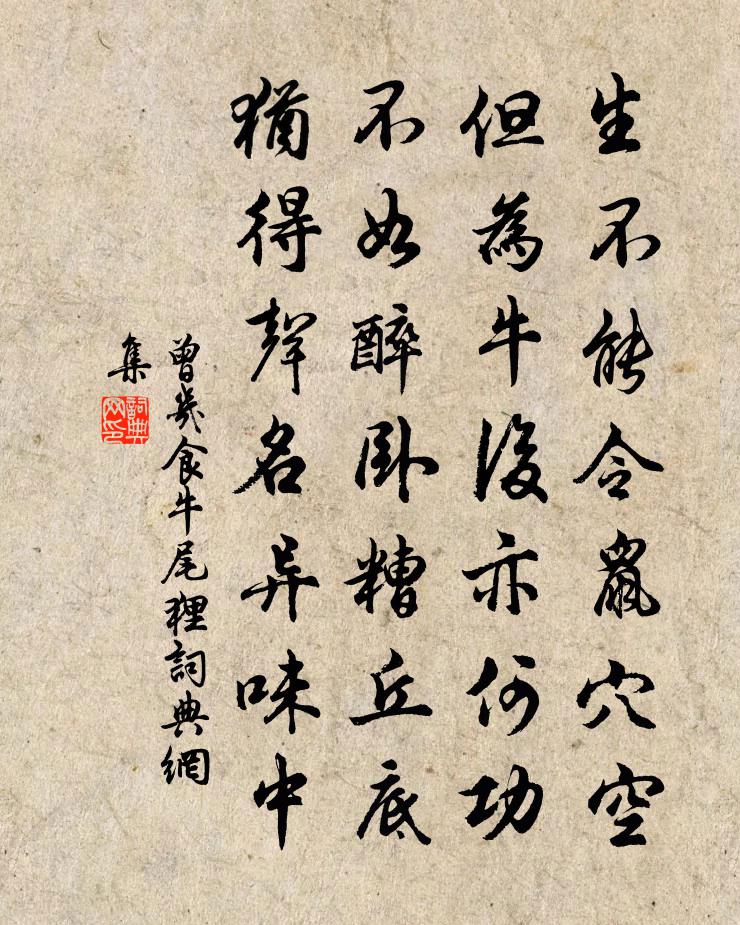 生不能令鼠穴空
但為牛後亦何功
不如醉臥糟丘底
猶得聲名異味中
曾幾食牛尾狸詞典網
集
詞典
网印